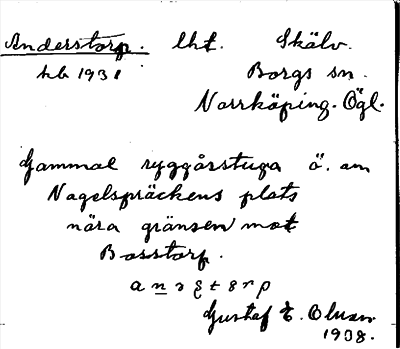 Anderstorp. lht. Skälv.
hb 1931 Borgs sn.
Norrköping. Ögl.
Gammal ryggåsstuga ö. om
Nagelspräckens plats
nära gränsen mot
Borstorp.
Gustaf E. Olsson
1938.